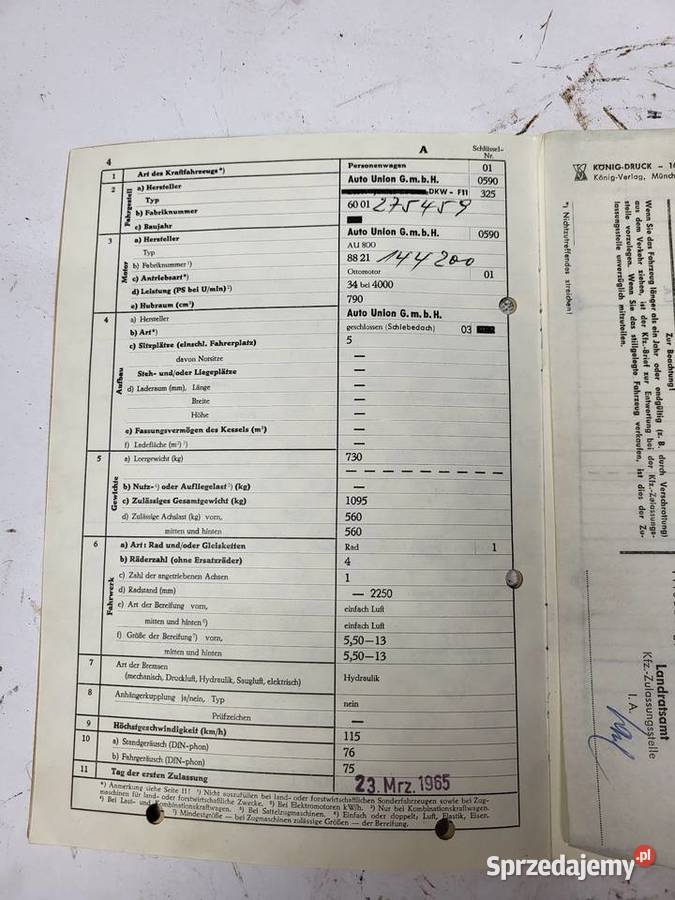 4
A
Schlüssel-
Nr.
1 Art des Kraftfahrzeugs*) Personenwagen 01
2 Fahrgestell a) Hersteller Auto Union G.m.b.H. 0590
Typ DKW - F11 325
b) Fabriknummer 60 01 275459
c) Baujahr
3 Motor a) Hersteller Auto Union G.m.b.H. 0590
Typ AU 800
b) Fabriknummer¹) 88 21 144200
c) Antriebsart*) Ottomotor 01
d) Leistung (PS bei U/min)²) 34 bei 4000
e) Hubraum (cm³) 790
4 Aufbau a) Hersteller Auto Union G.m.b.H.
b) Art*) geschlossen (Schiebedach) 03
c) Sitzplätze (einschl. Fahrerplatz) 5
davon Notsitze —
Steh- und/oder Liegeplätze —
d) Laderaum (mm), Länge —
Breite —
Höhe —
e) Fassungsvermögen des Kessels (m³) —
f) Ladefläche (m²) —
5 Gewichte a) Leergewicht (kg) 730
b) Nutz- oder Aufliegelast (kg) —
c) Zulässiges Gesamtgewicht (kg) 1095
d) Zulässige Achslast (kg) vorn, 560
mitten und hinten 560
6 Fahrwerk a) Art: Rad und/oder Gleisketten Rad 1
b) Räderzahl (ohne Ersatzräder) 4
c) Zahl der angetriebenen Achsen 1
d) Radstand (mm) — 2250
e) Art der Bereifung vorn, einfach Luft
mitten und hinten⁶) einfach Luft
f) Größe der Bereifung⁷) vorn, 5,50—13
mitten und hinten 5,50—13
7 Art der Bremsen
(mechanisch, Druckluft, Hydraulik, Saugluft, elektrisch) Hydraulik
8 Anhängerkupplung ja/nein, Typ nein
Prüfzeichen —
9 Höchstgeschwindigkeit (km/h) 115
10 a) Standgeräusch (DIN-phon) 76
b) Fahrgeräusch (DIN-phon) 75
11 Tag der ersten Zulassung 23. Mrz. 1965
*) Anmerkung siehe Seite 11! ¹) Nicht auszufüllen bei land- oder forstwirtschaftlichen Sonderfahrzeugen sowie bei Zug-
maschinen für land- oder forstwirtschaftliche Zwecke. ²) Bei Elektromotoren kW/h. ³) Nur bei Kombinationskraftwagen.
⁴) Bei Last- und Kombinationskraftwagen. ⁵) Bei Sattelzugmaschinen. ⁶) Einfach oder doppelt, Luft, Elastik, Eisen.
⁷) Mindestgröße — bei Zugmaschinen zulässige Größen — der Bereifung.
KÖNIG-DRUCK
König-Verlag, Münch
*) Nichtzutreffendes streichen!
Zur Beachtung!
Wenn Sie das Fahrzeug länger als ein Jahr oder endgültig (z. B. durch Verschrottung)
aus dem Verkehr ziehen, ist der Kfz.-Brief zur Entwertung bei der Kfz.-Zulassungs-
stelle vorzulegen. Wenn Sie das stillgelegte Fahrzeug verkaufen, ist dies der Zu-
lassungsstelle unverzüglich mitzuteilen.
Landratsamt
Kfz.-Zulassungsstelle
I. A.
Sprzedajemy.pl